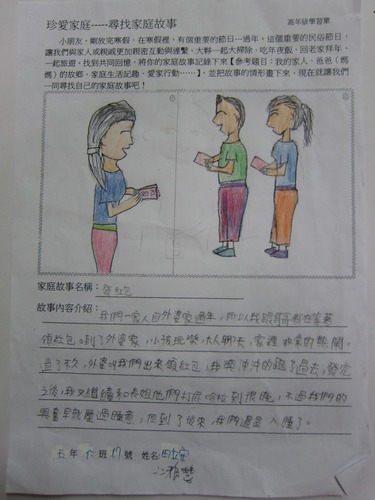 珍愛家庭-----尋找家庭故事
高年級學習單
小朋友，剛放完寒假，在寒假裡，有個重要的節日---過年，這個重要的民俗節日，
讓我們與家人或親戚更加親密互動與連繫，大夥一起大掃除、吃年夜飯、回老家拜年、
一起旅遊，找到共同回憶，將你的家庭故事記錄下來【參考題目：我的家人、爸爸（媽
媽）的故鄉、家庭生活記趣、愛家行動……】，並把故事的情形畫下來，現在就讓我們
一同尋找自己的家庭故事吧！
家庭故事名稱：發紅包
故事內容介紹：我們一家人回外婆家過年，所以我跟哥哥都在等著
領紅包。到了外婆家，小孩玩樂，大人聊天，家裡非常的熱鬧。
過了不久，外婆叫我們出來領紅包，我興沖沖的跑了過去，發完
之後，我又繼續和表姐他們打屁哈拉到很晚，不過我們的
興奮早就壓過睡意，但到了後來，我們還是入睡了。
五年 仁 班 17 號 姓名